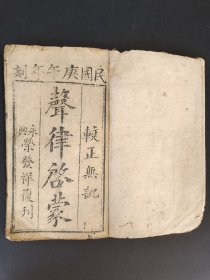 民國庚午年刻
較正無訛
聲律啟蒙
永興榮發祥復刊